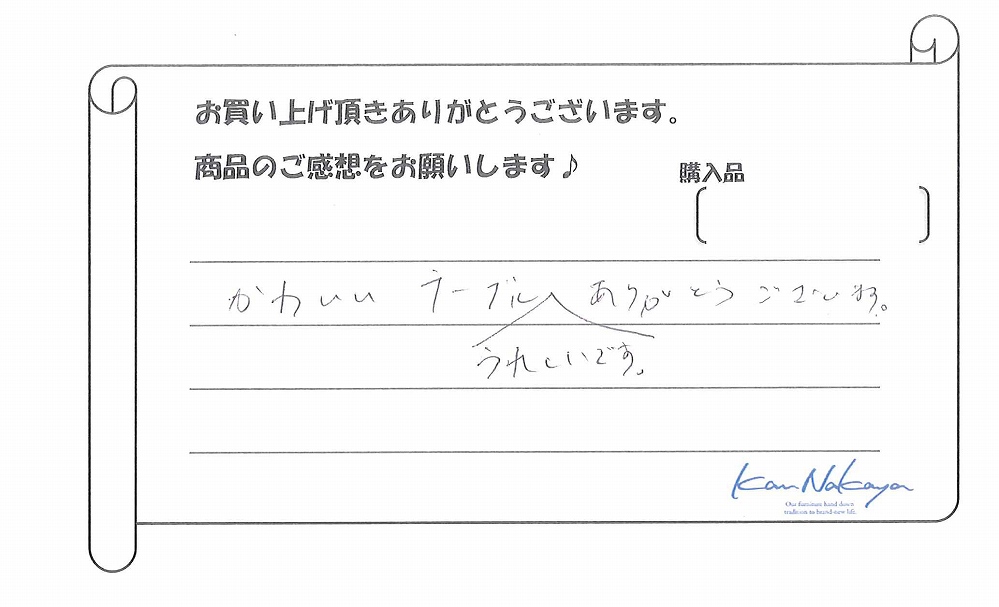 お買い上げ頂きありがとうございます。
商品のご感想をお願いします♪
購入品
かわいい テーブル ありがとうございます。
うれしいです。
Kan Nakaya
Our furniture hand down
tradition to brand-new life.